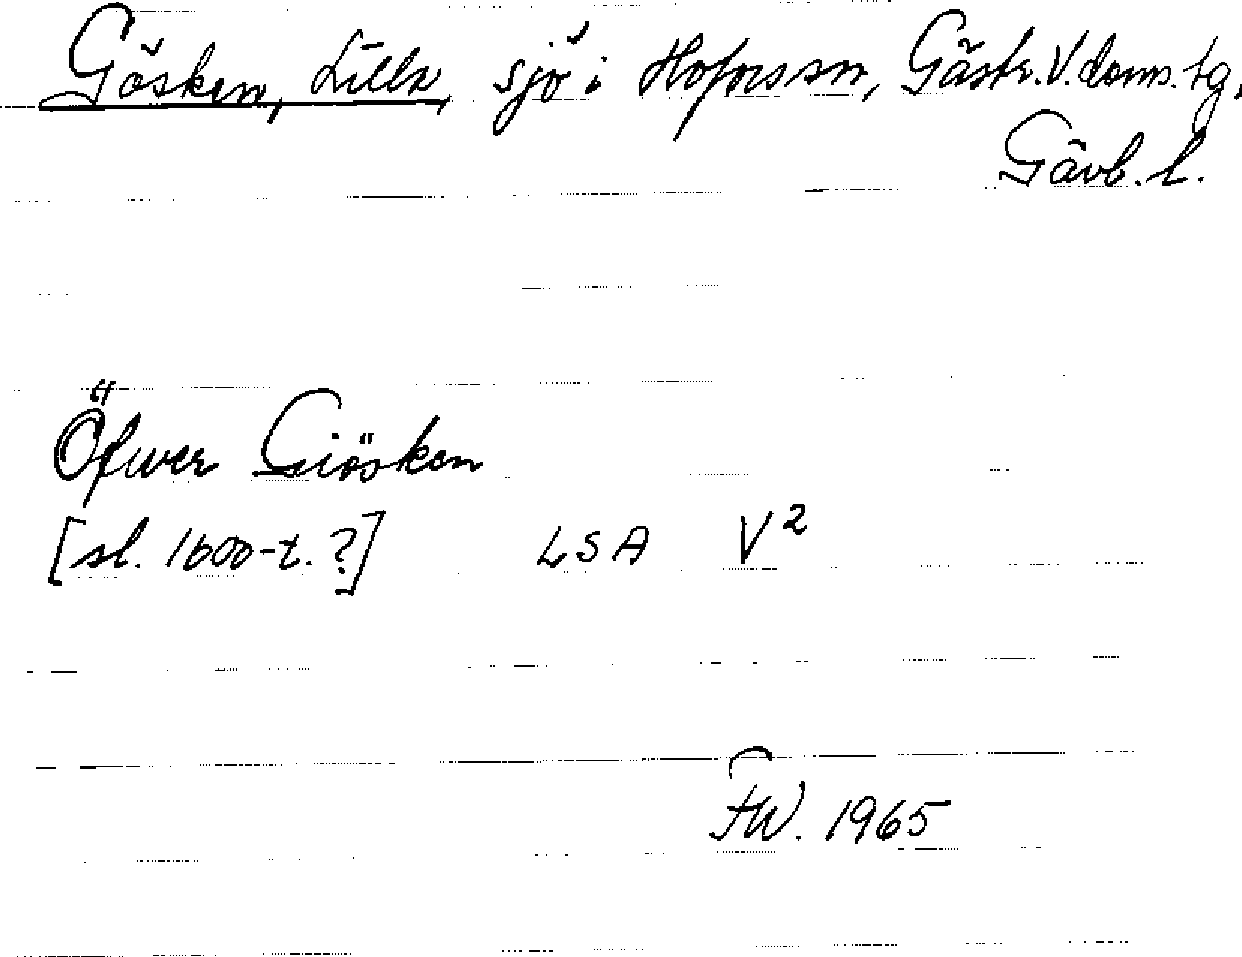 Gösken, Lilla, sjö i Hofors sn, Gästr. V. doms. tg,
Gävb. l.
Öfwer Giösken
[sl. 1600-t. ?] LSA V2
FW. 1965